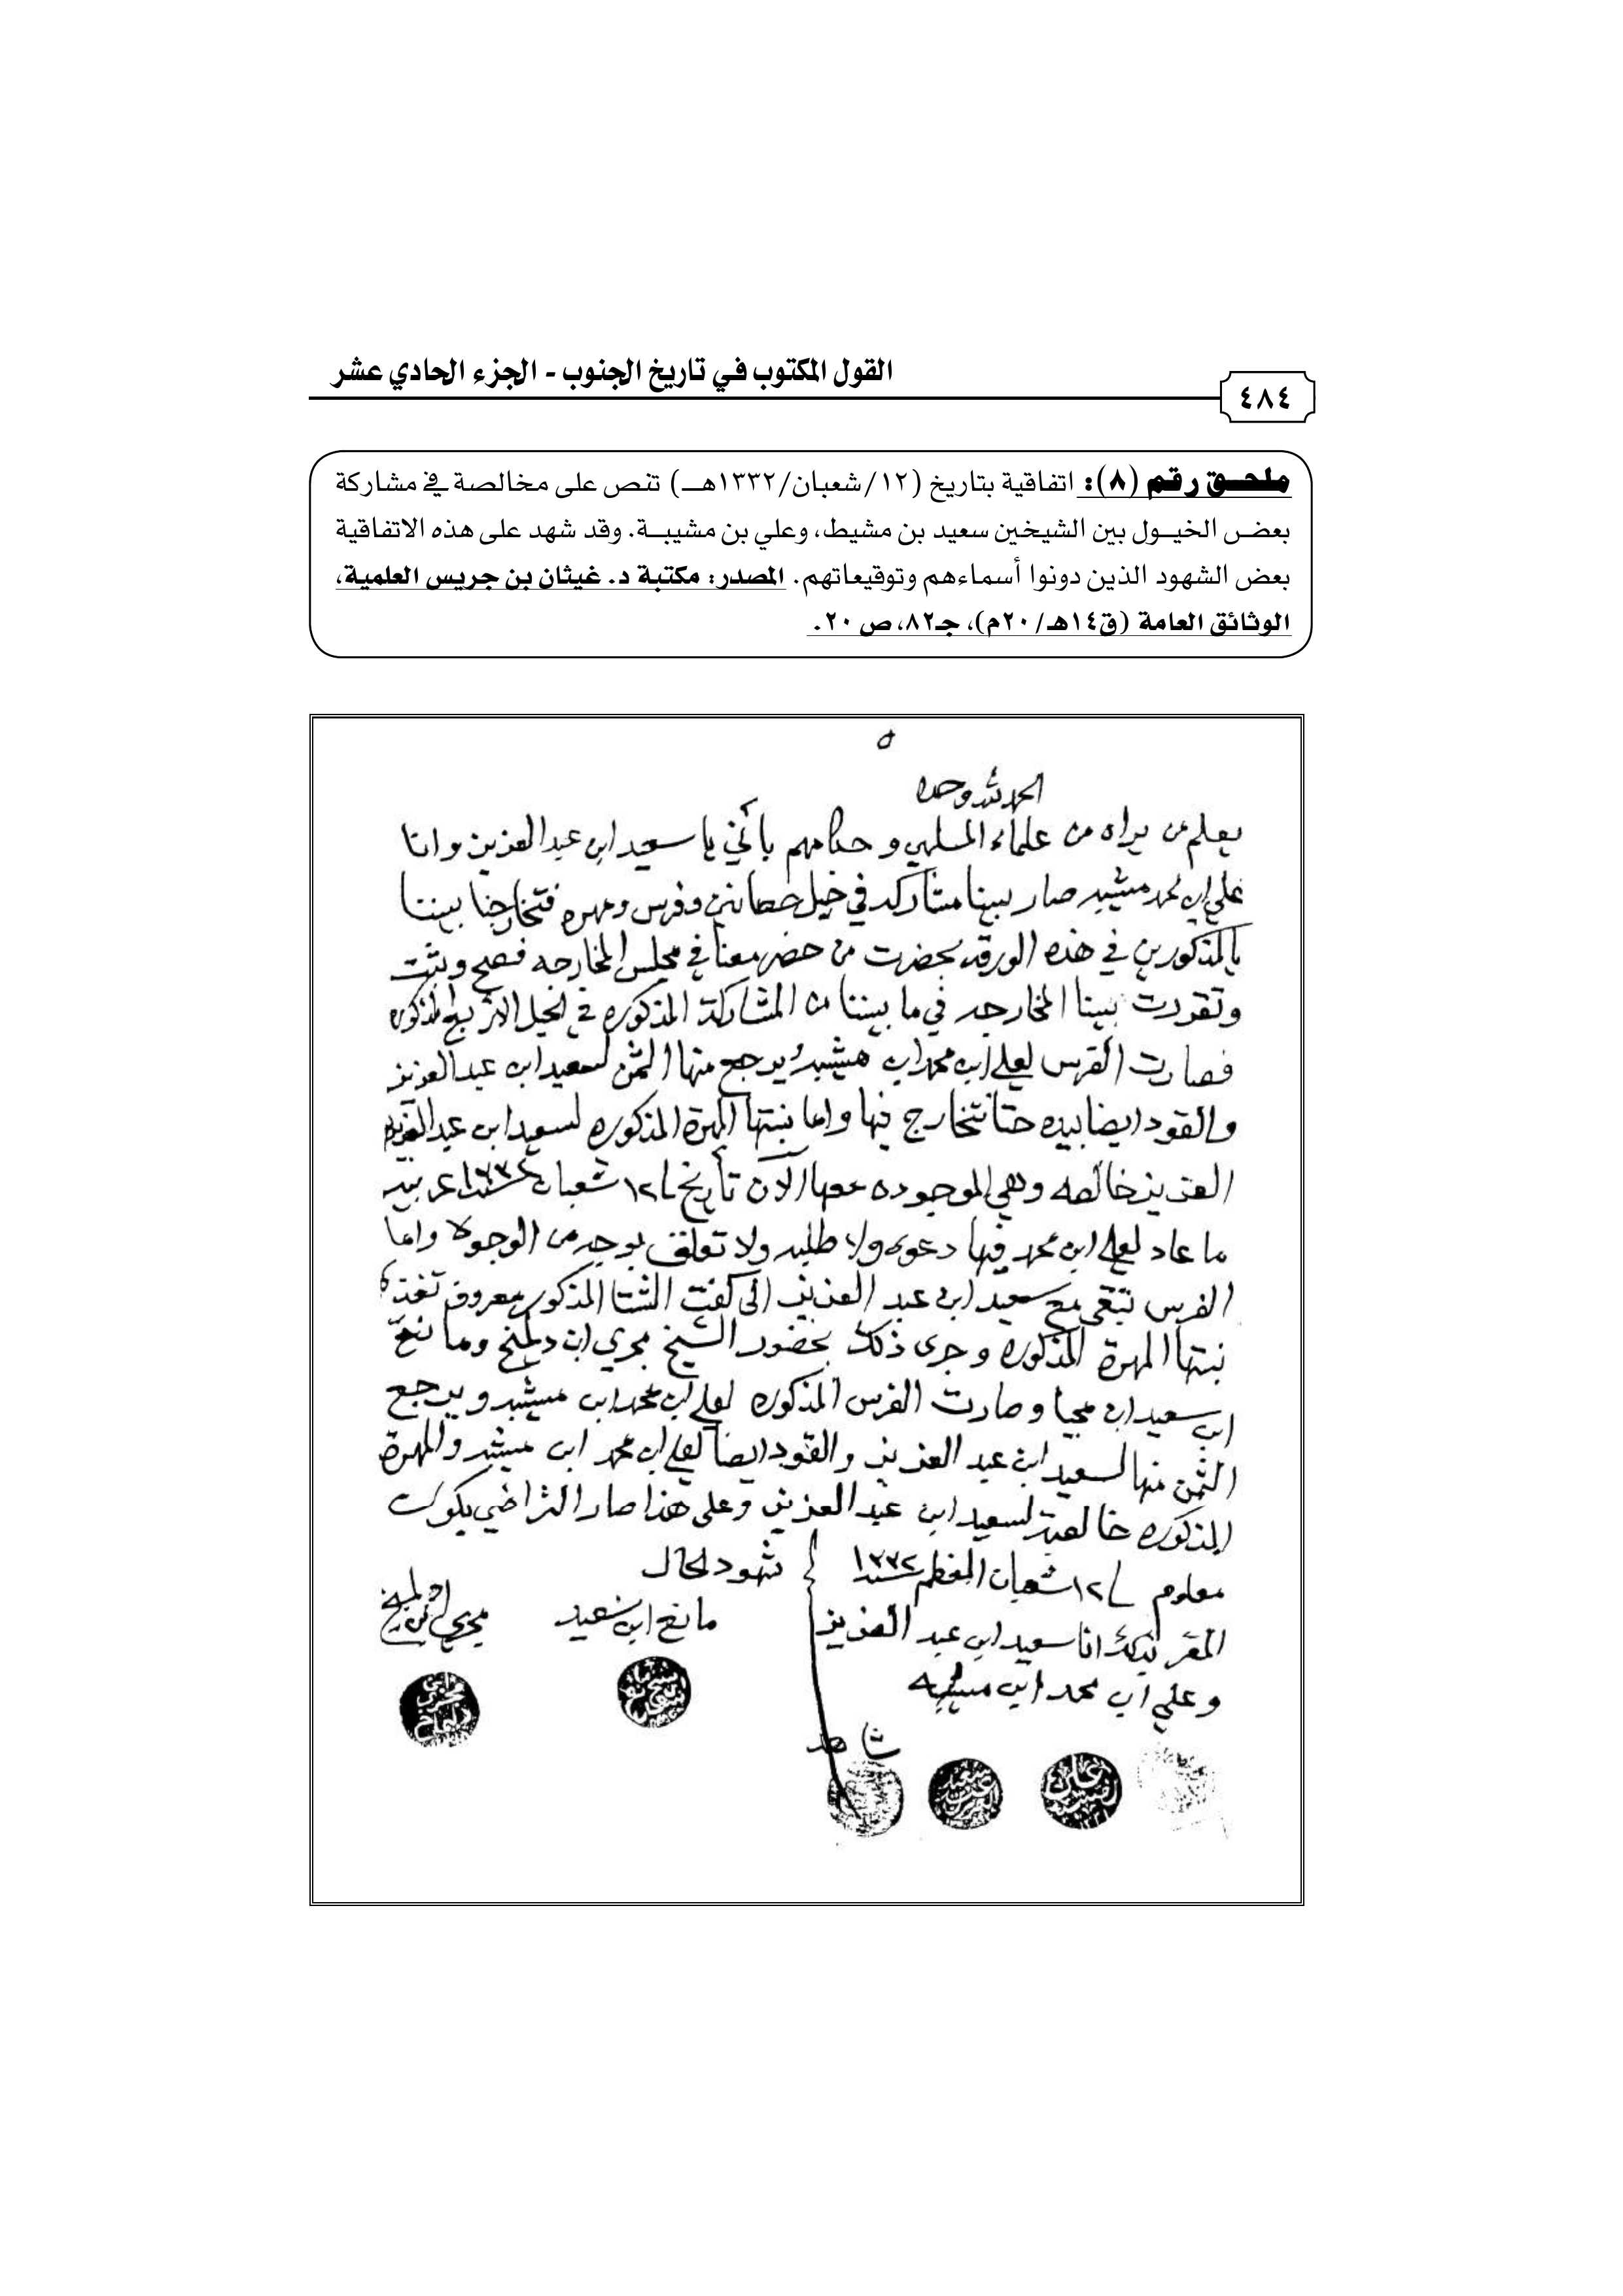 القول المكتوب في تاريخ الجنوب - الجزء الحادي عشر
٤٨٤
ملحق رقم (٨): اتفاقية بتاريخ (١٢/شعبان/١٣٣٢هـ) تنص على مخالصة في مشاركة
بعض الخيول بين الشيخين سعيد بن مشيط، وعلي بن مشيبة. وقد شهد على هذه الاتفاقية
بعض الشهود الذين دونوا أسماءهم وتوقيعاتهم. المصدر: مكتبة د. غيثان بن جريس العلمية،
الوثائق العامة (ق١٤هـ/٢٠م)، جـ٨٢، ص ٢٠.
٥
الحمد لله وحده
يعلم من يراه من علماء المسلمين وحكامهم بأني يا سعيد ابن عبد العزيز وانا
علي ابن محمد مشيبه صار بيننا مشاركه في خيل حصانين وفرس ومهره فتخارجنا بيننا
بالمذكورين في هذه الورقه بحضرت من حضر معنا في مجلس المخارجه فصح وثبت
وتقررت بيننا المخارجه في ما بيننا من المشاركة المذكوره في الخيل الاربع المذكوره
فصارت الفرس لعلي ابن محمد ابن مشيبه ويرجع منها الثمن لسعيد ابن عبد العزيز
والقود ايضا بيده حتا نتخارج فيها واما بنتها المهرة المذكوره لسعيد ابن عبد العزيز
العزيز خالصه وهي الموجوده معها الآن تأريخ ١٢ شعبان سنة ١٣٣٢ عربيه
ما عاد لعلي ابن محمد فيها دعوى ولا طلبه ولا تعلق بوجه من الوجوه واما
الفرس تبقى مع سعيد ابن عبد العزيز الى كفت الشتا المذكور بمعروف تغذي
بنتها المهرة المذكوره وجرى ذلك بحضور الشيخ مجري ابن دلمخ ومانع
ابن سعيد ابن محيا وصارت الفرس المذكوره لعلي ابن محمد ابن مشيبه ويرجع
الثمن منها لسعيد ابن عبد العزيز والقود ايضا لعلي ابن محمد ابن مشيبه والمهرة
المذكوره خالصة لسعيد ابن عبد العزيز وعلى هذا صار التراضي يكون
معلوم ١٢ شعبان المعظم سنة ١٣٣٢
شهود الحال
المقر بذلك انا سعيد ابن عبد العزيز
مانع ابن سعيد
مجري ابن دلمخ
وعلي ابن محمد ابن مشيبه
شاهد